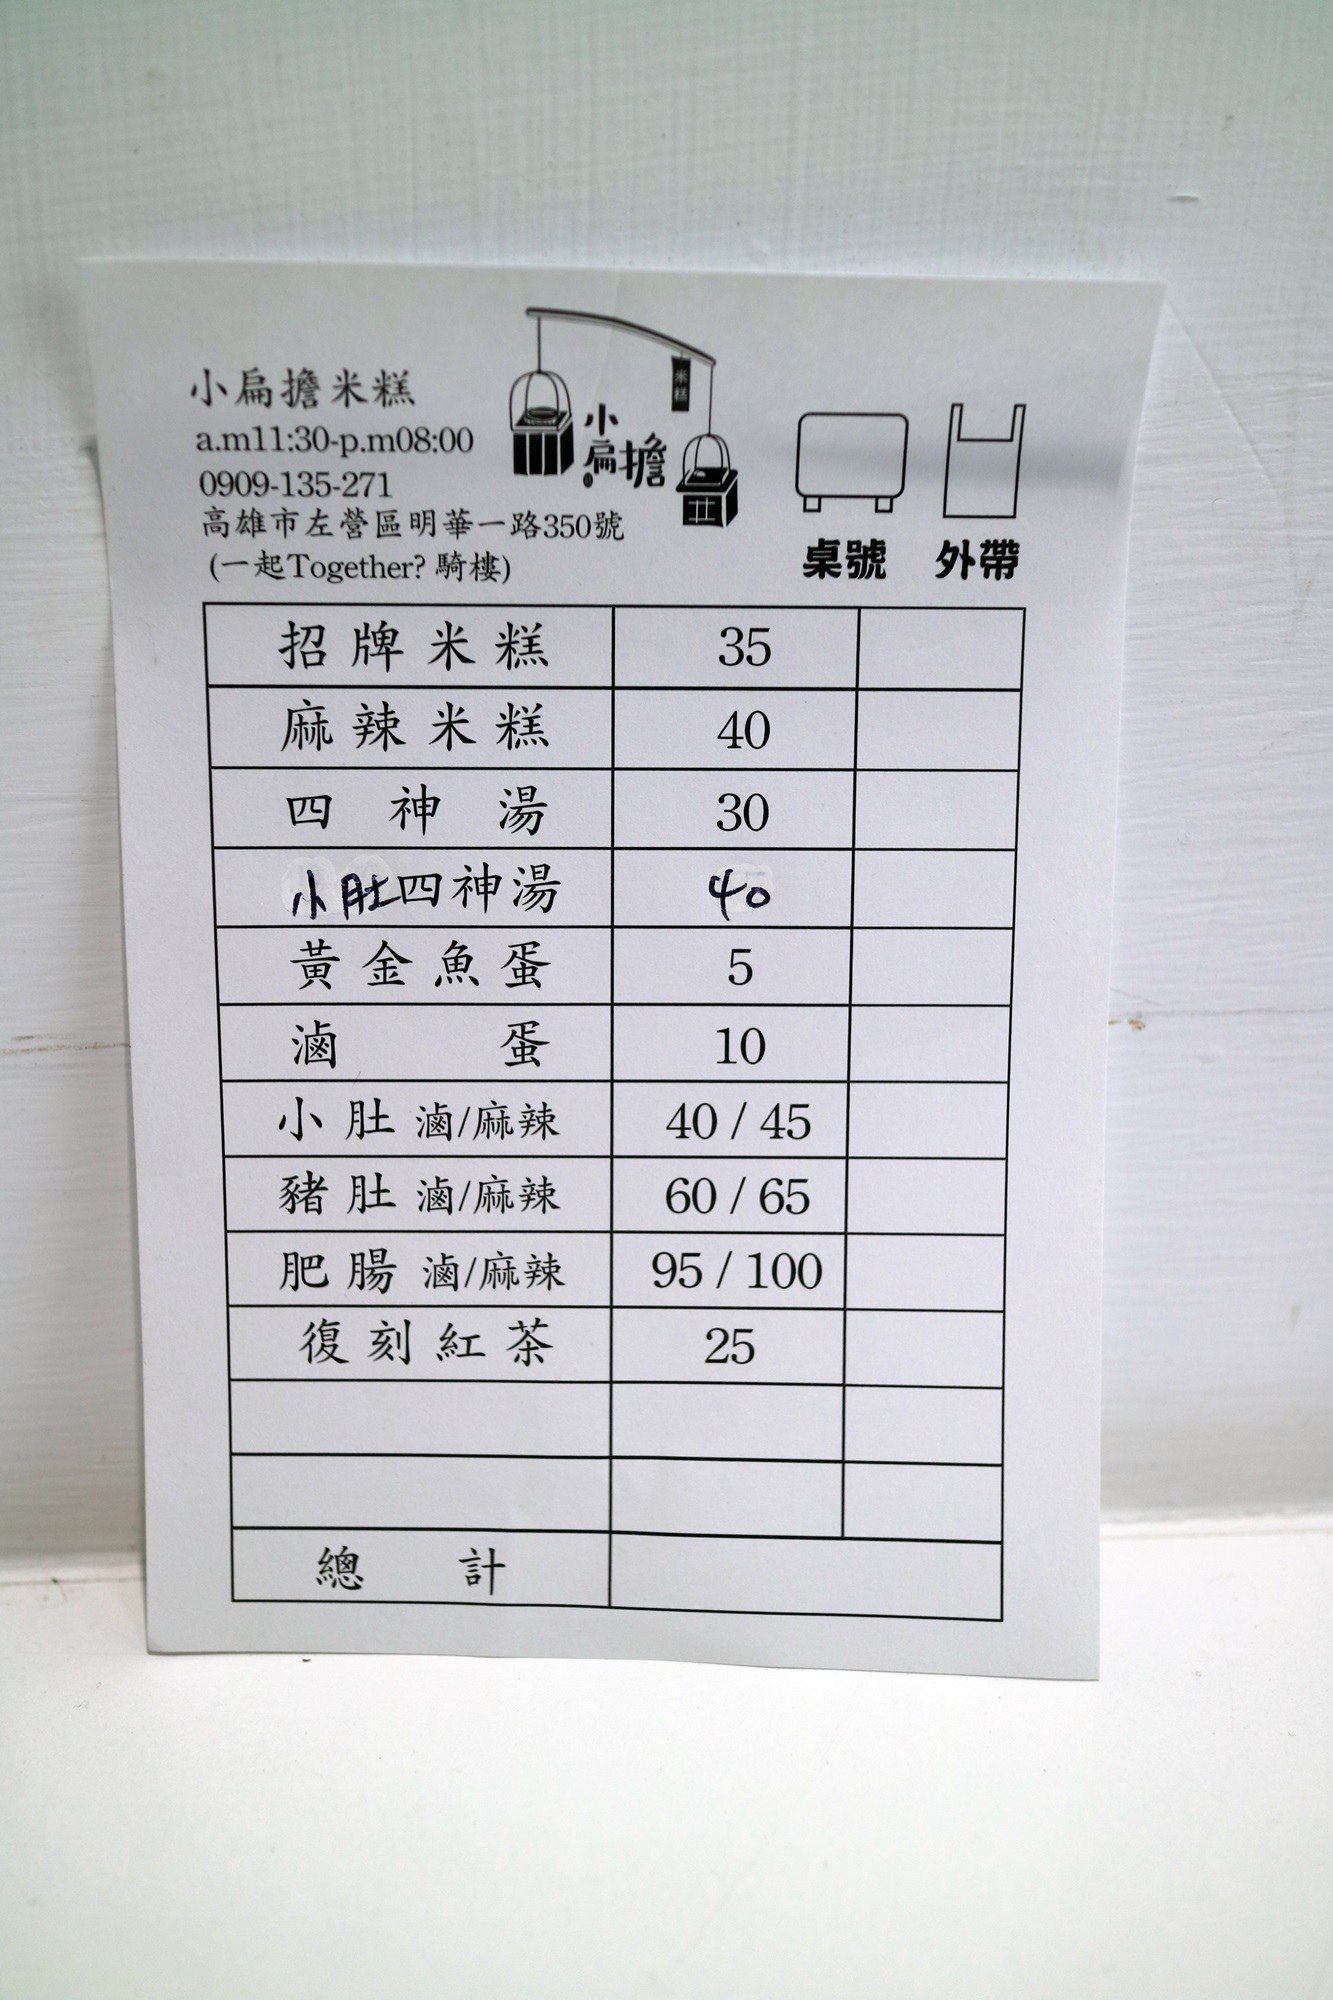 小扁擔米糕
a.m11:30-p.m08:00
0909-135-271
高雄市左營區明華一路350號
(一起Together? 騎樓)
米糕
小扁擔
桌號 外帶
招牌米糕 35
麻辣米糕 40
四神湯 30
小肚四神湯 40
黃金魚蛋 5
滷蛋 10
小肚 滷/麻辣 40 / 45
豬肚 滷/麻辣 60 / 65
肥腸 滷/麻辣 95 / 100
復刻紅茶 25
總計